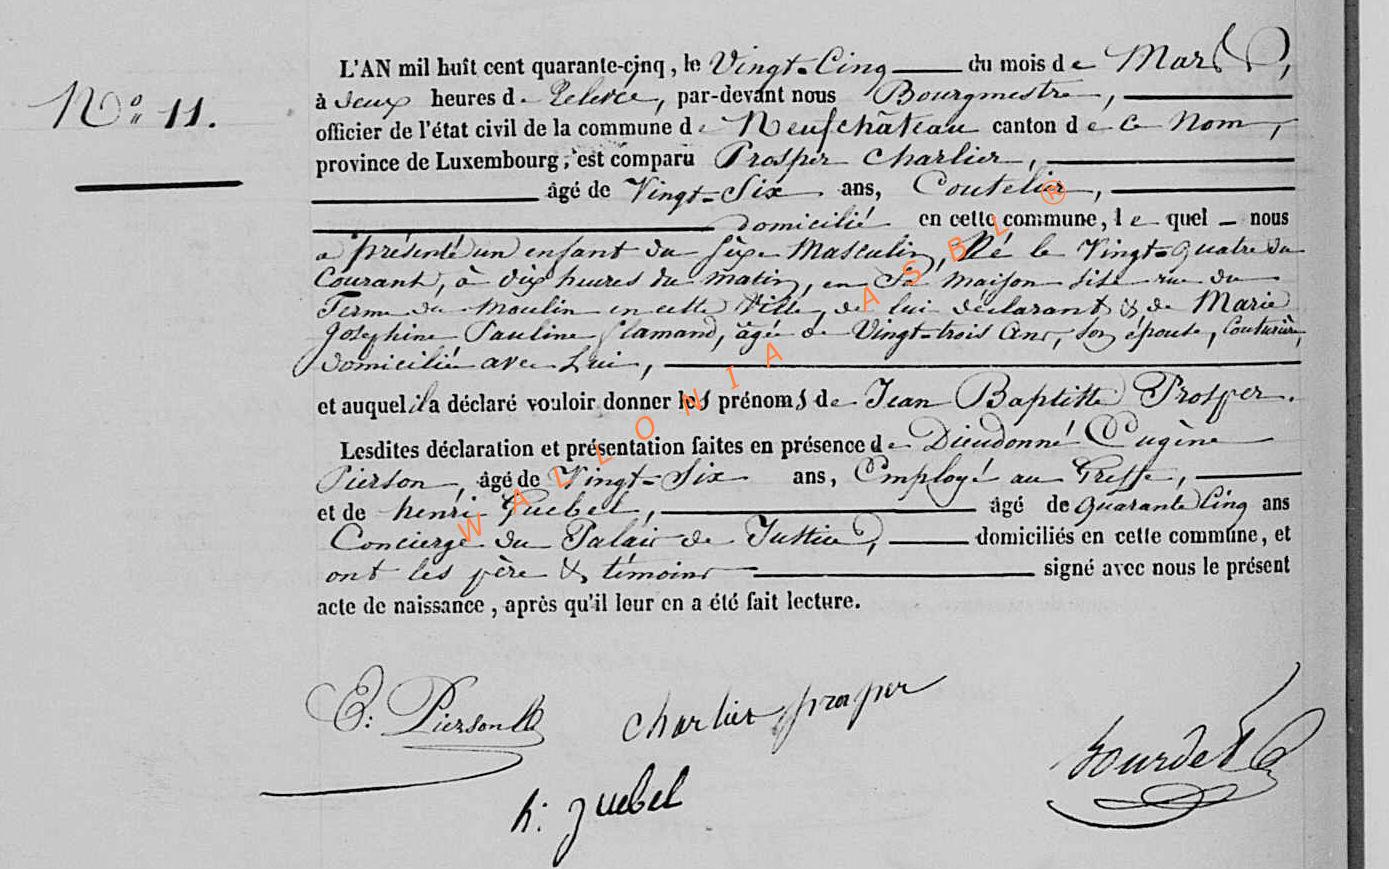 L'AN mil huit cent quarante-cinq, le Vingt-Cinq du mois de Mars,
N° 11.
à deux heures de relevée, par-devant nous Bourgmestre,
officier de l'état civil de la commune de Neufchâteau canton de ce Nom,
province de Luxembourg, est comparu Prosper Charlier,
âgé de Vingt-Six ans, Coutelier,
domicilié en cette commune, lequel nous
a présenté un enfant du sexe Masculin, Né le Vingt-quatre du
Courant, à dix heures du matin, en sa maison site rue du
Terme du Moulin en cette Ville, de lui déclarant & de Marie
Joséphine Pauline Flamand, âgée de Vingt-trois Ans, son épouse, Couturière,
domiciliée avec Lui,
et auquel il a déclaré vouloir donner les prénoms de Jean Baptiste Prosper.
Lesdites déclaration et présentation faites en présence de Dieudonné Eugène
Pierson, âgé de Vingt-Six ans, Employé au Greffe,
et de henri Guebel, âgé de quarante Cinq ans
Concierge du Palais de Justice, domiciliés en cette commune, et
ont les père & témoins signé avec nous le présent
acte de naissance, après qu'il leur en a été fait lecture.
E: Pierson
charlier prosper
Bourdet
h: guebel
WALLONIA ASBL ®